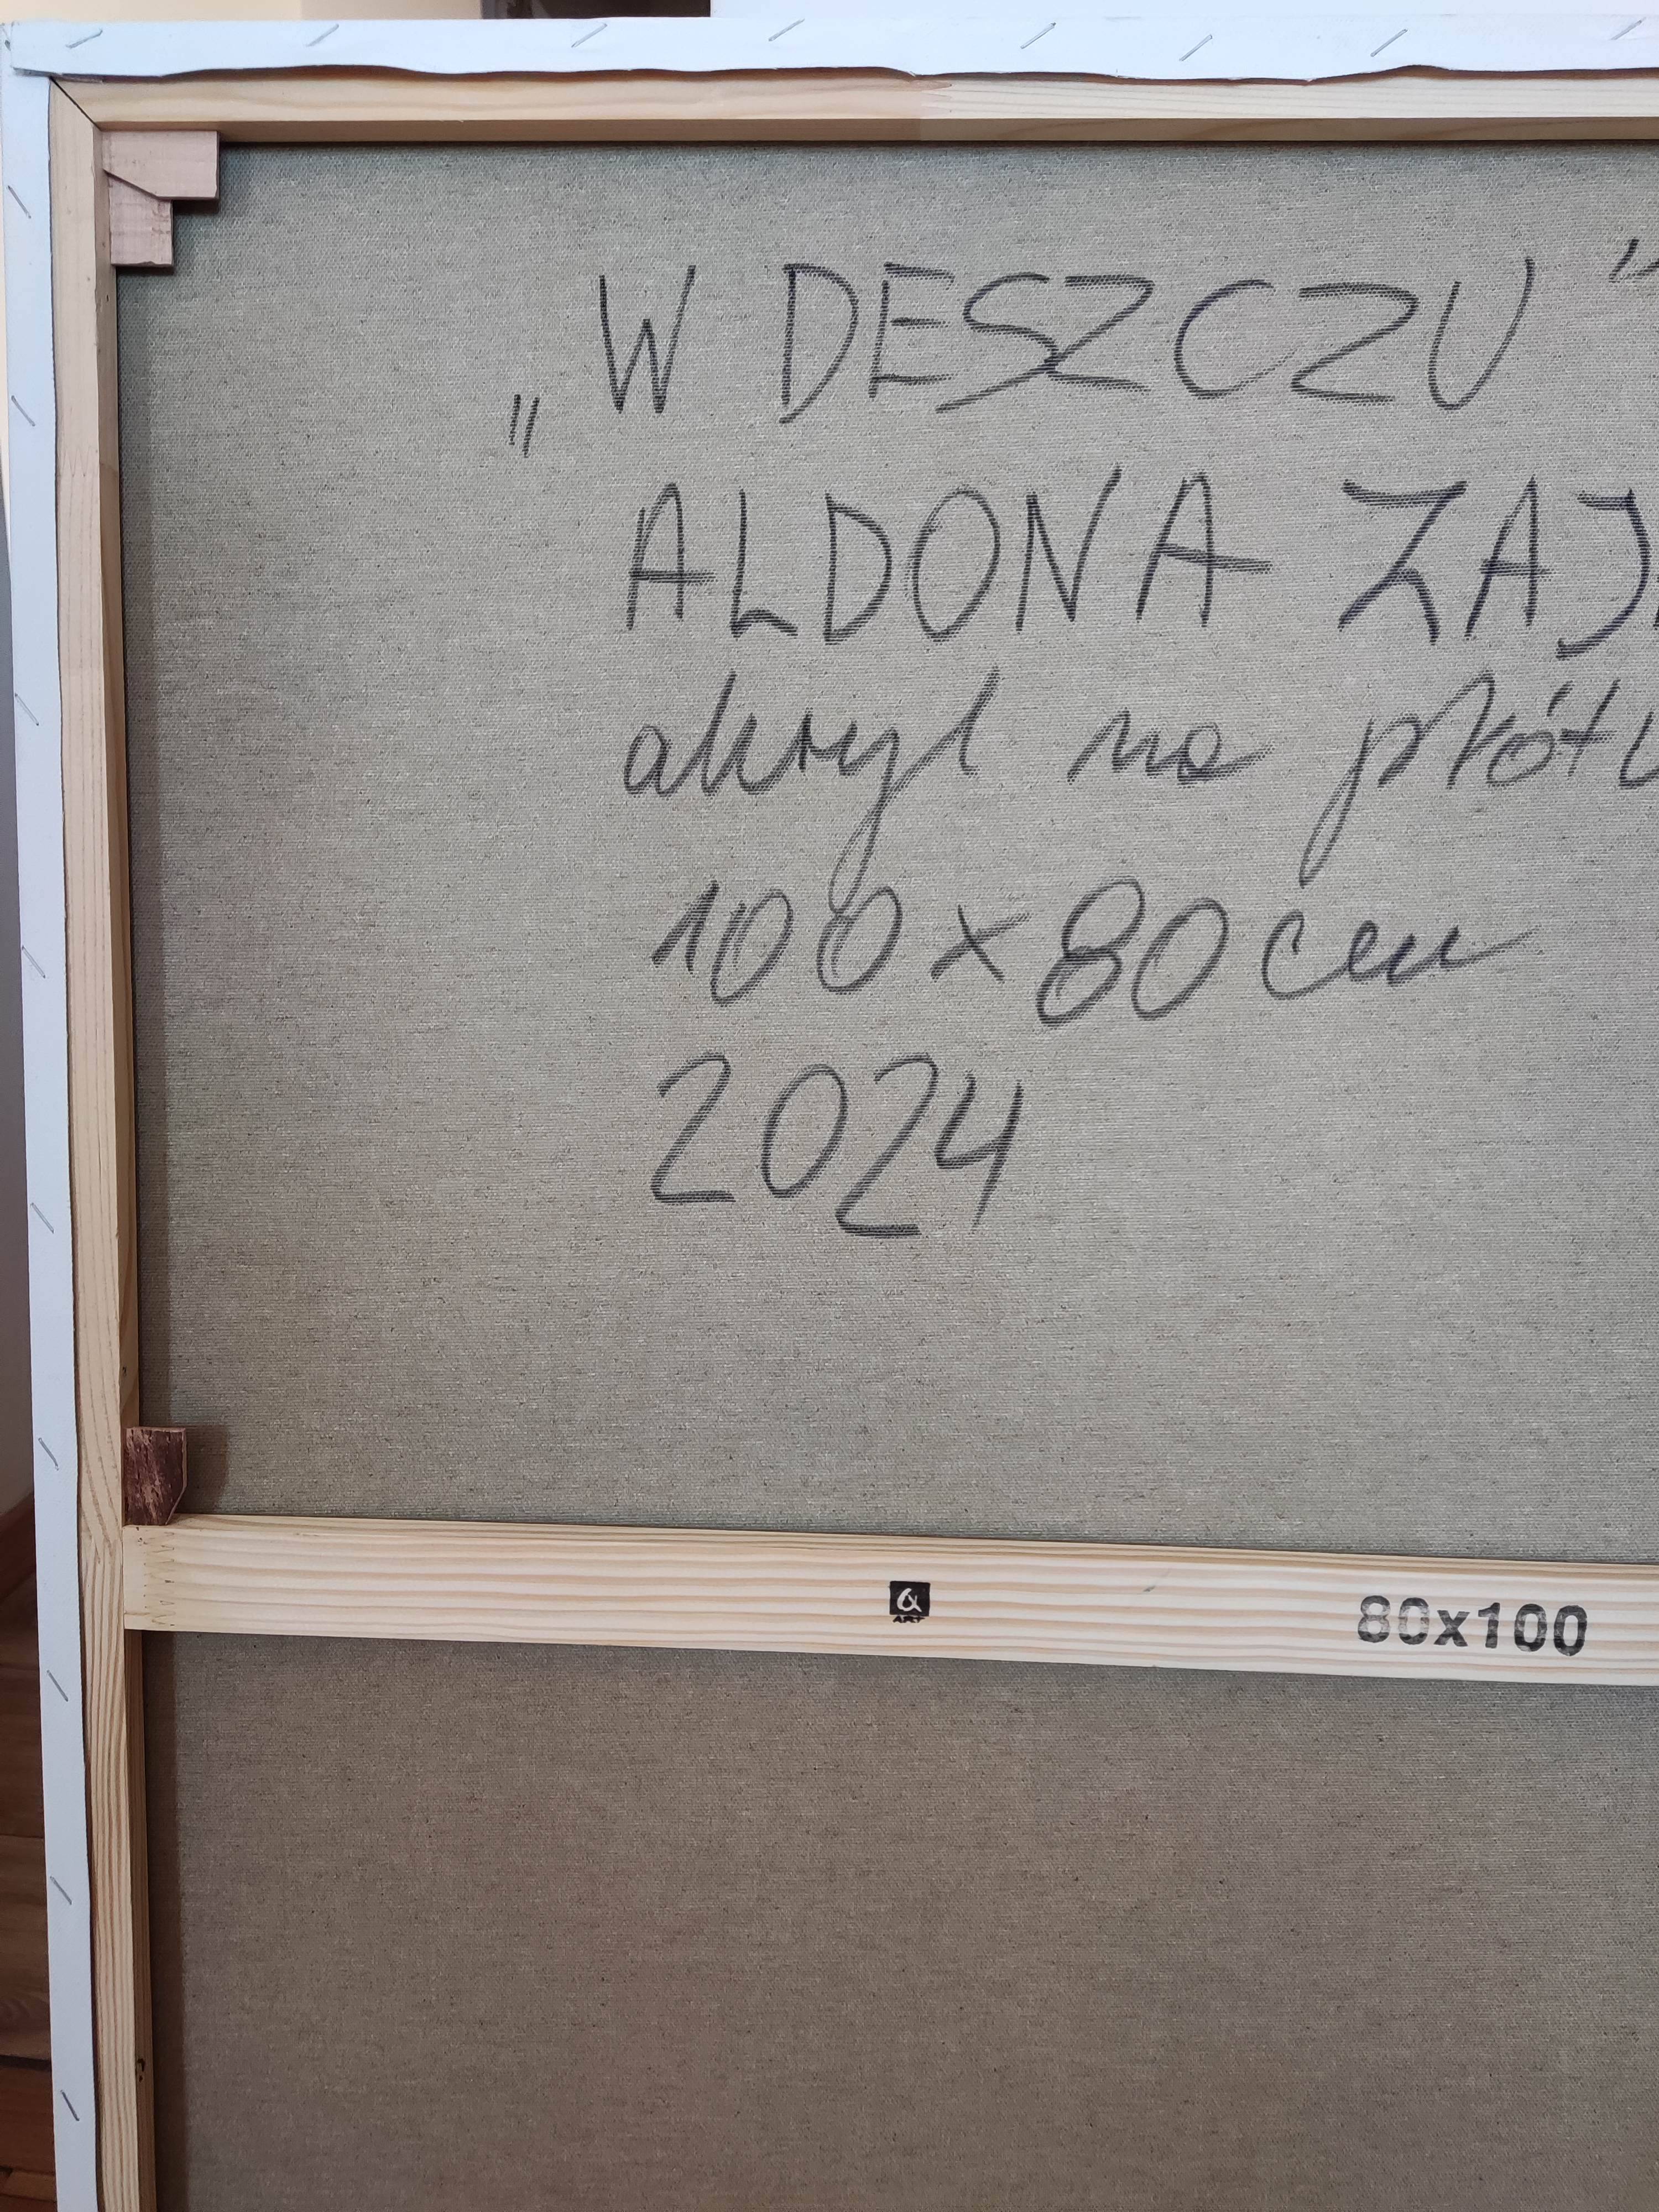 „W DESZCZU”
ALDONA ZAJ
akryl na płót
100 x 80 cm
2024
ART
80x100